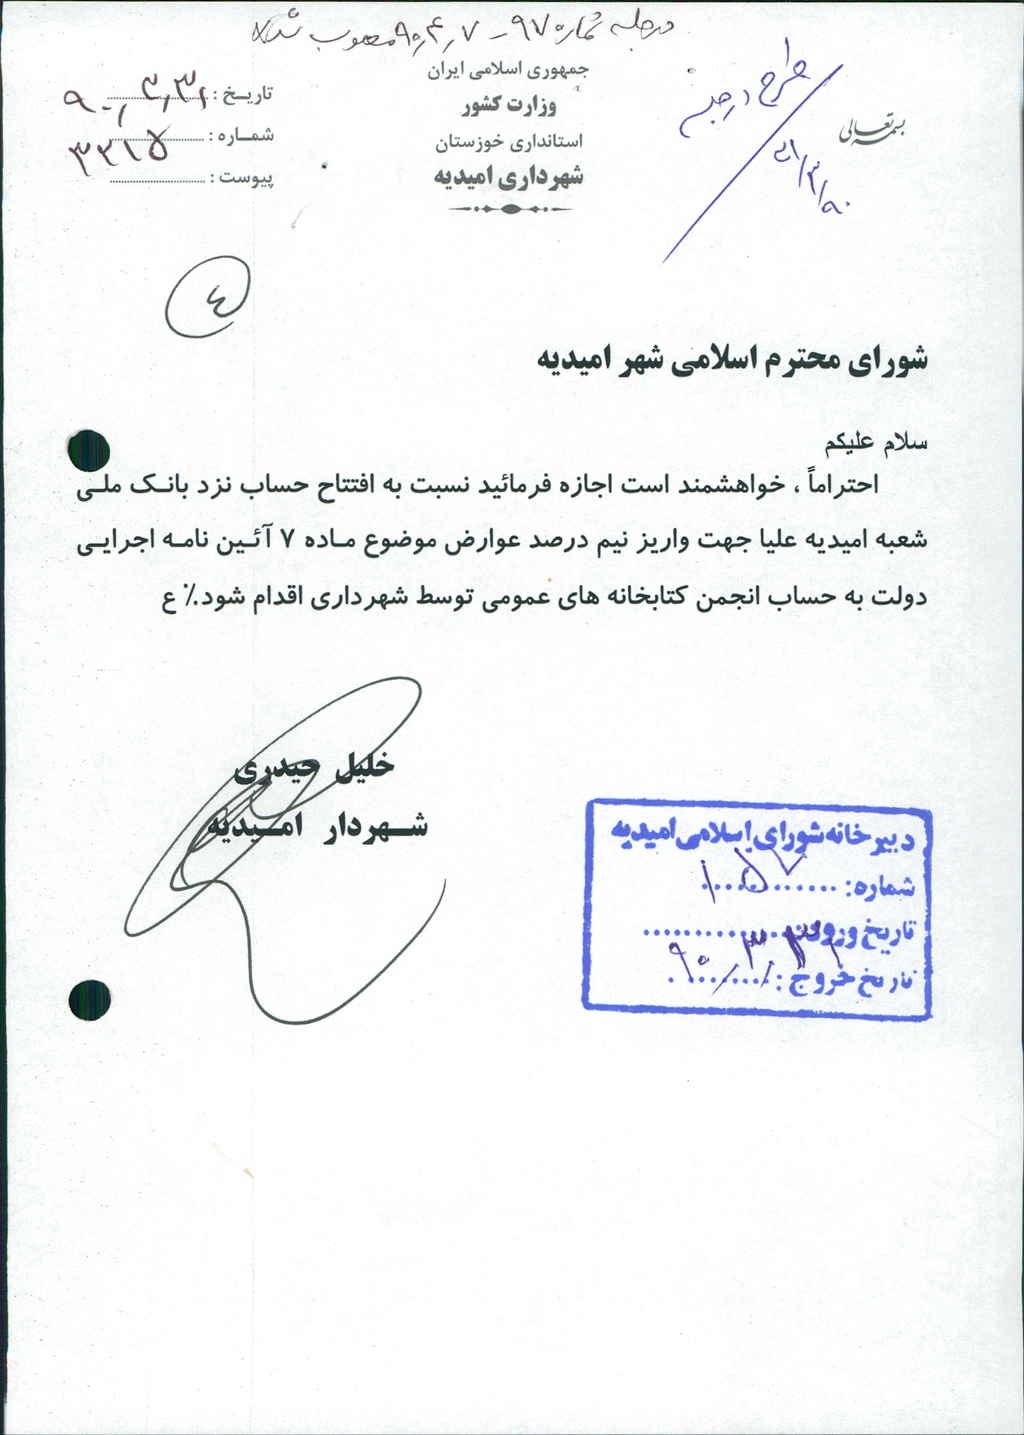 در جلسه شماره ۹۷ - ۹۰٫۴٫۷ مصوب شد
جمهوری اسلامی ایران
وزارت کشور
استانداری خوزستان
شهرداری امیدیه
بسمه تعالی
طرح در جلسه
تاریخ : ۹۰٫۳٫۳۱
شماره : ۳۲۱۵
پیوست :
۴
شورای محترم اسلامی شهر امیدیه
سلام علیکم
احتراماً ، خواهشمند است اجازه فرمائید نسبت به افتتاح حساب نزد بانک ملی
شعبه امیدیه علیا جهت واریز نیم درصد عوارض موضوع ماده ۷ آئین نامه اجرایی
دولت به حساب انجمن کتابخانه های عمومی توسط شهرداری اقدام شود.٪ ع
خلیل حیدری
شهردار امیدیه
دبیرخانه شورای اسلامی امیدیه
شماره: ۱۵۷
تاریخ ورود:
تاریخ خروج: ۹۰٫۳٫۳۱